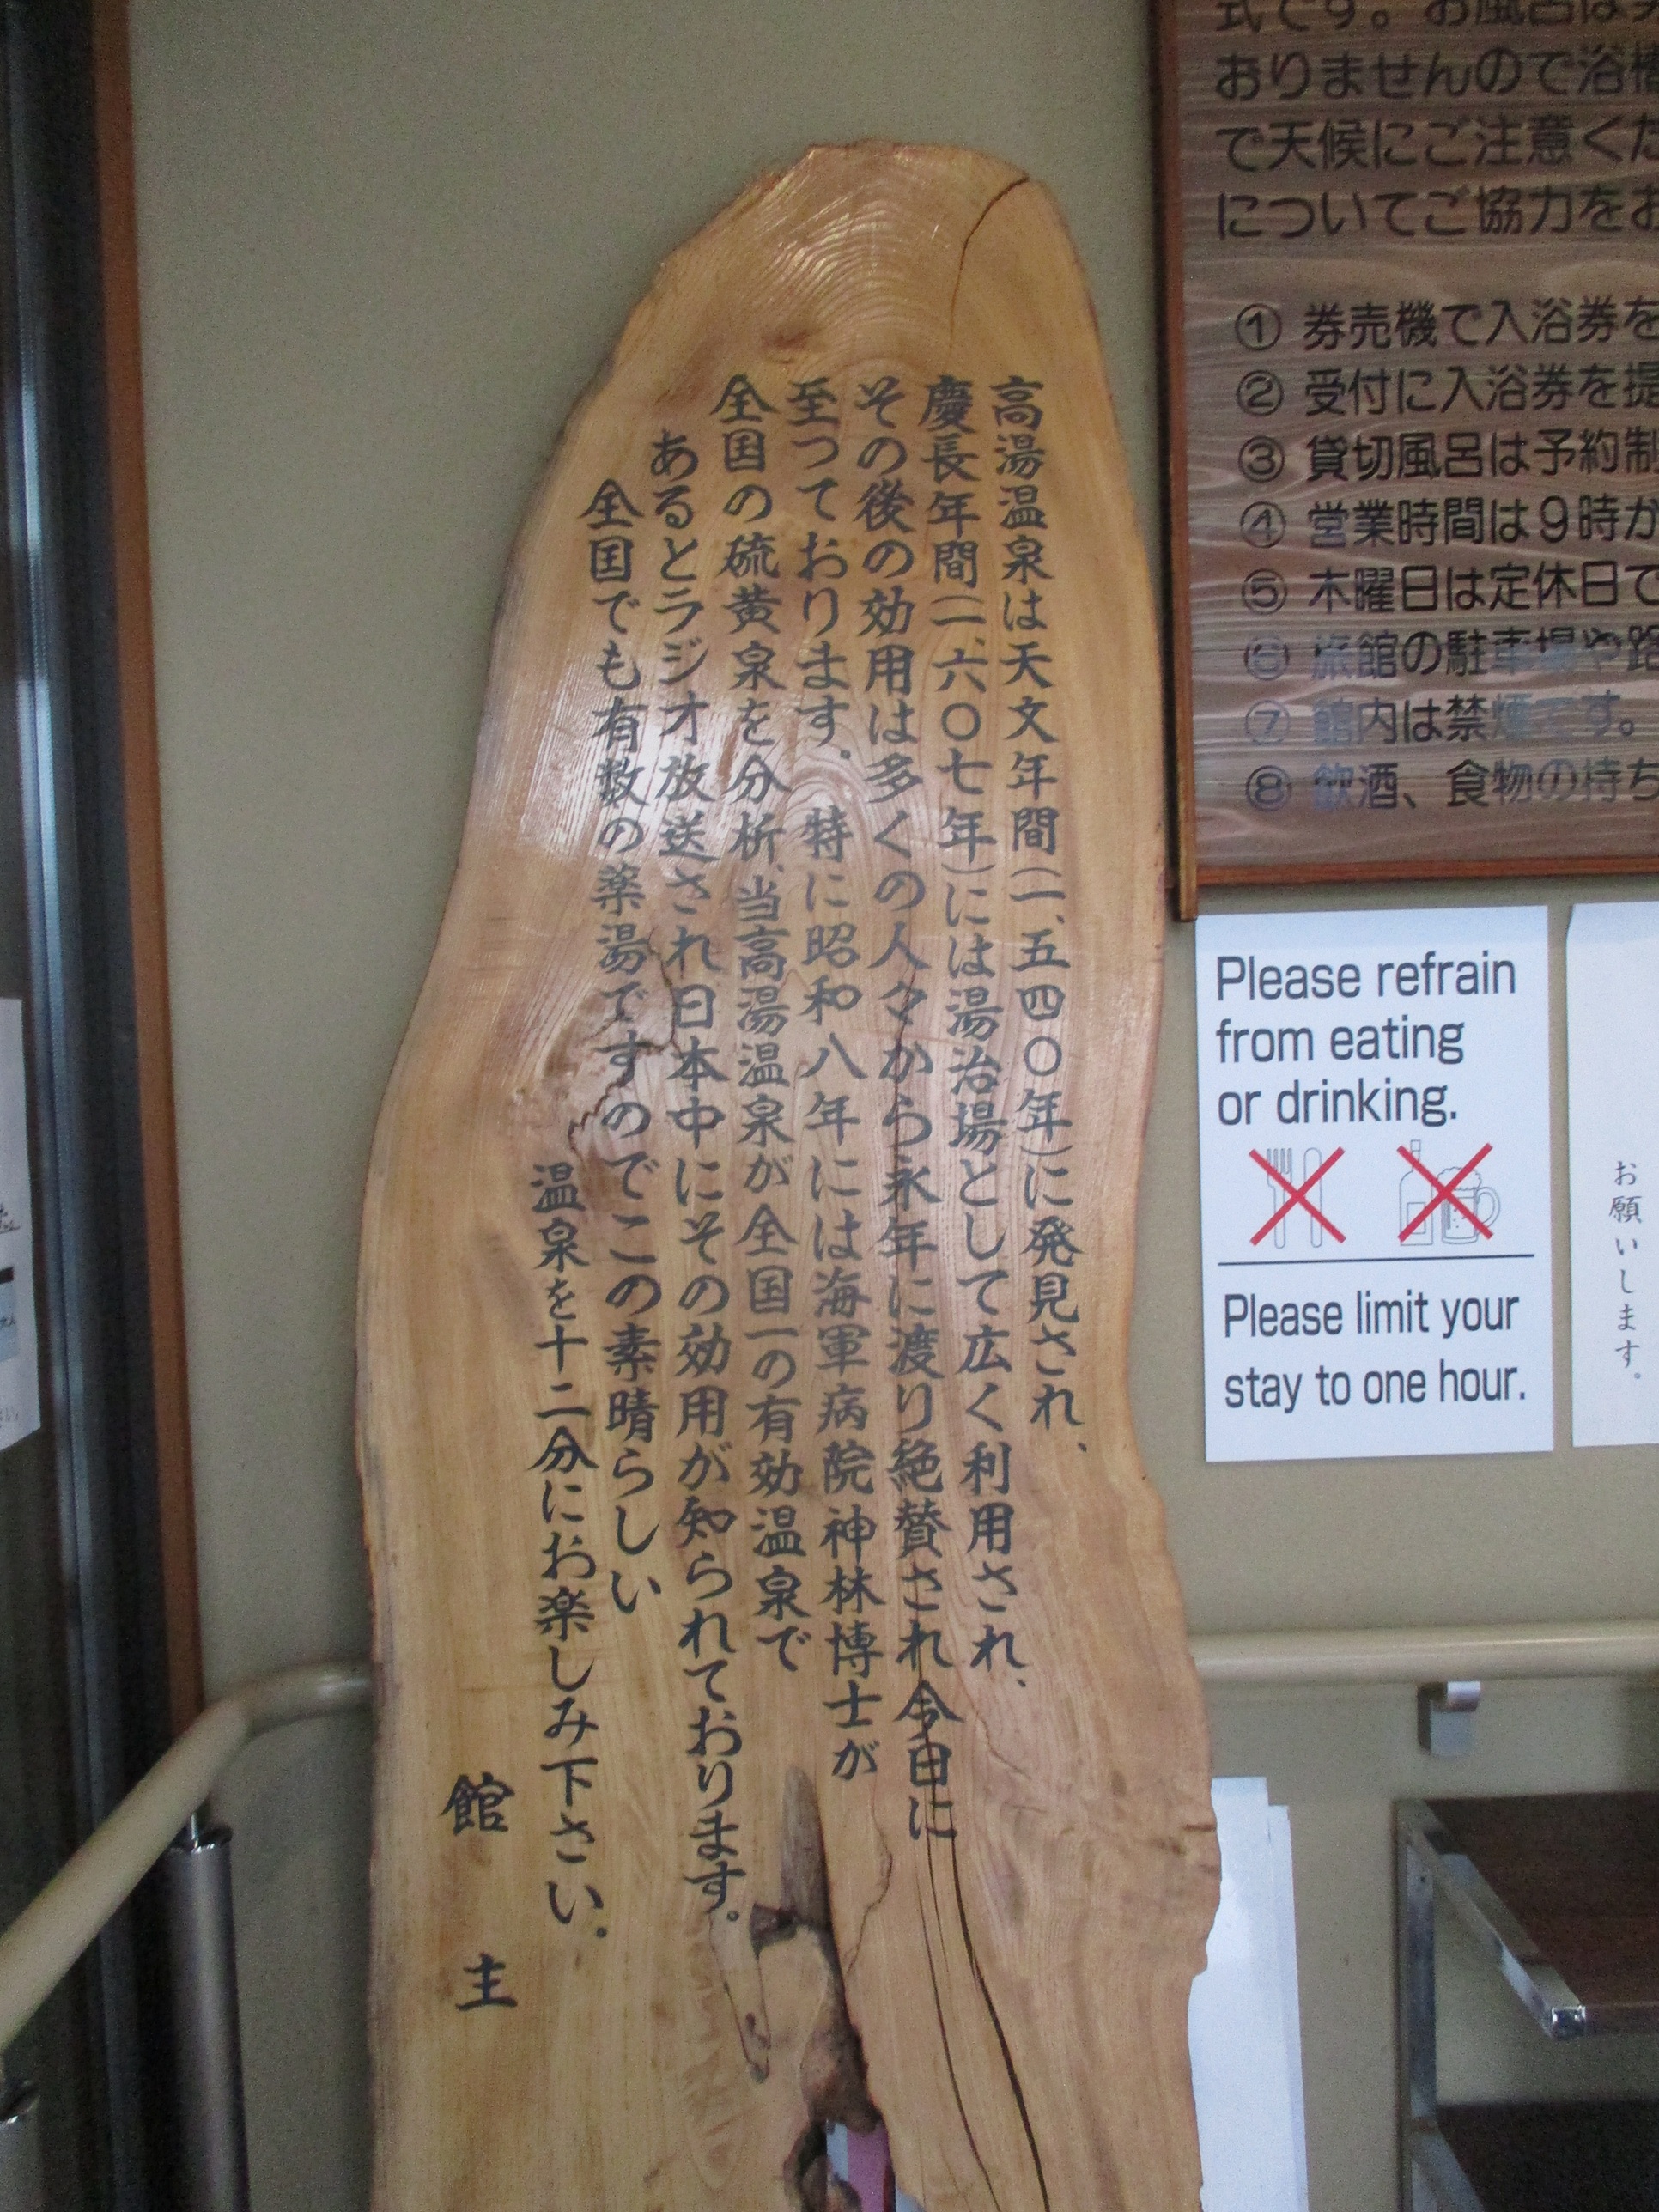 高湯温泉は天文年間(一、五四〇年)に発見され、
慶長年間(一、六〇七年)には湯治場として広く利用され、
その後の効用は多くの人々から永年に渡り絶賛され今日に
至つております。特に昭和八年には海軍病院神林博士が
全国の硫黄泉を分析、当高湯温泉が全国一の有効温泉で
あるとラジオ放送され日本中にその効用が知られております。
全国でも有数の薬湯ですのでこの素晴らしい
温泉を十二分にお楽しみ下さい。
館主
式です。お風呂は
おりませんので浴槽
で天候にご注意くだ
についてご協力をお
① 券売機で入浴券を
② 受付に入浴券を提
③ 貸切風呂は予約制
④ 営業時間は9時か
⑤ 木曜日は定休日で
⑥ 旅館の駐車場や路
⑦ 館内は禁煙です。
⑧ 飲酒、食物の持ち
Please refrain
from eating
or drinking.
Please limit your
stay to one hour.
お願いします。